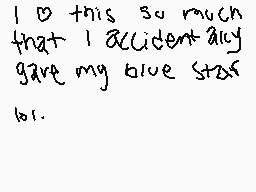 I ♡ this so much
that I accidentally
gave my blue stars
lol.